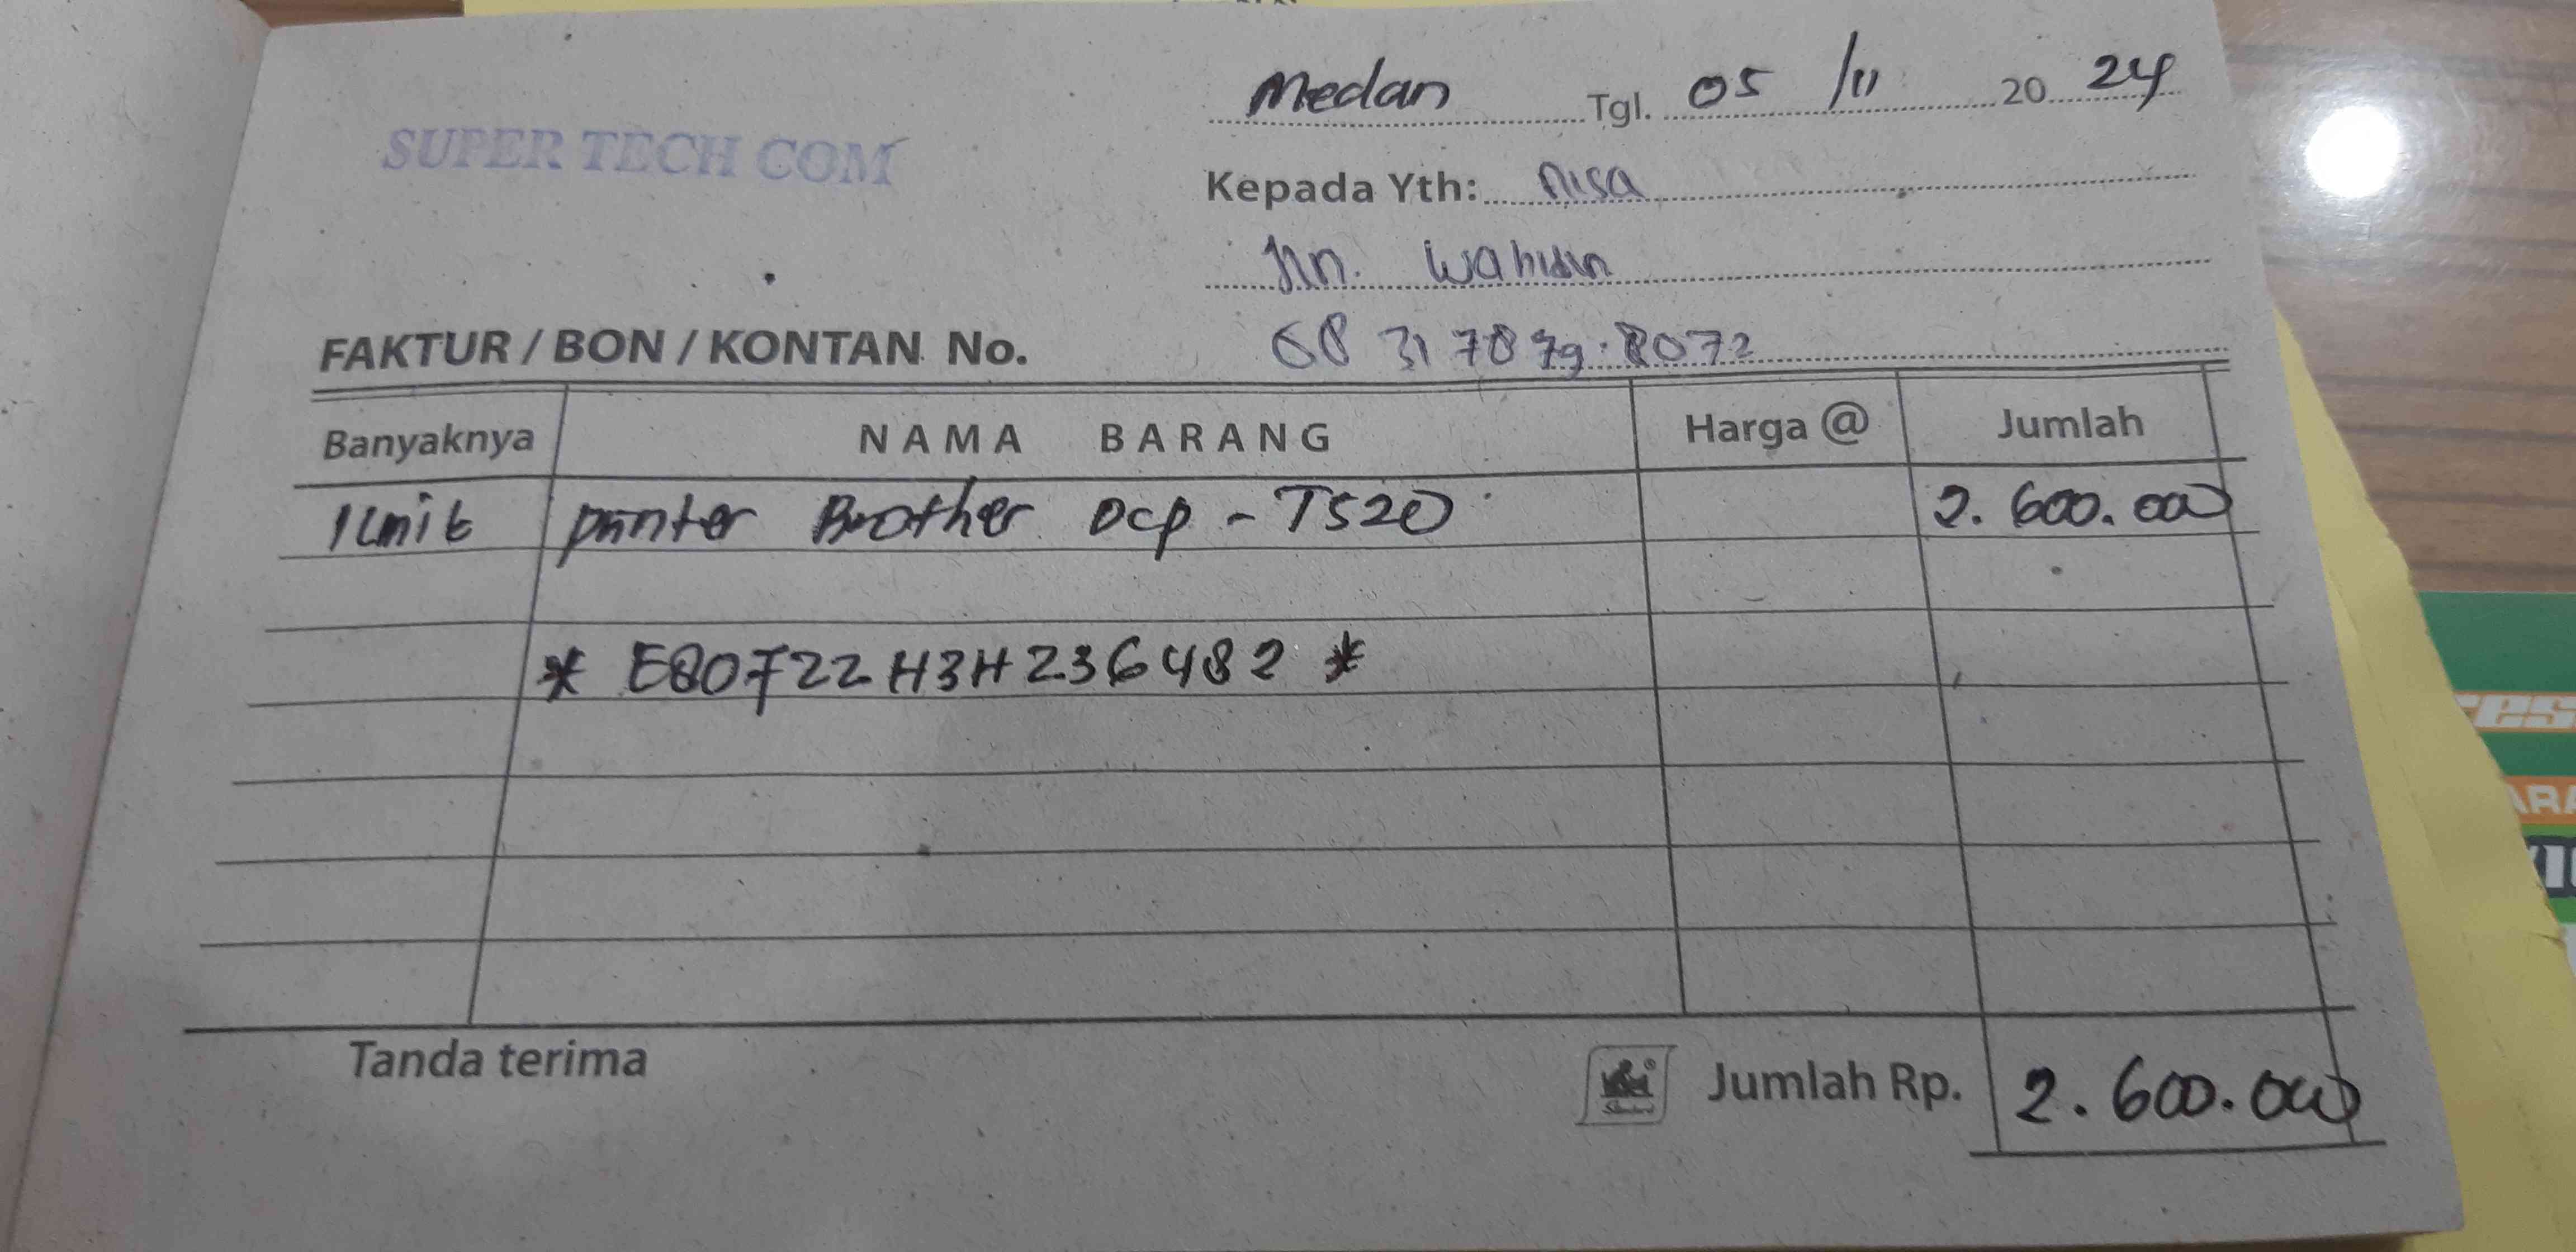 Medan Tgl. 05 /11 20 24
SUPER TECH COM
Kepada Yth: nisa
Jln. Wahidin
FAKTUR / BON / KONTAN No.
Banyaknya NAMA BARANG Harga @ Jumlah
1 Unit printer Brother Dcp - T520 2.600.000
* E80722H3H236482 *
Tanda terima Jumlah Rp. 2.600.000
res